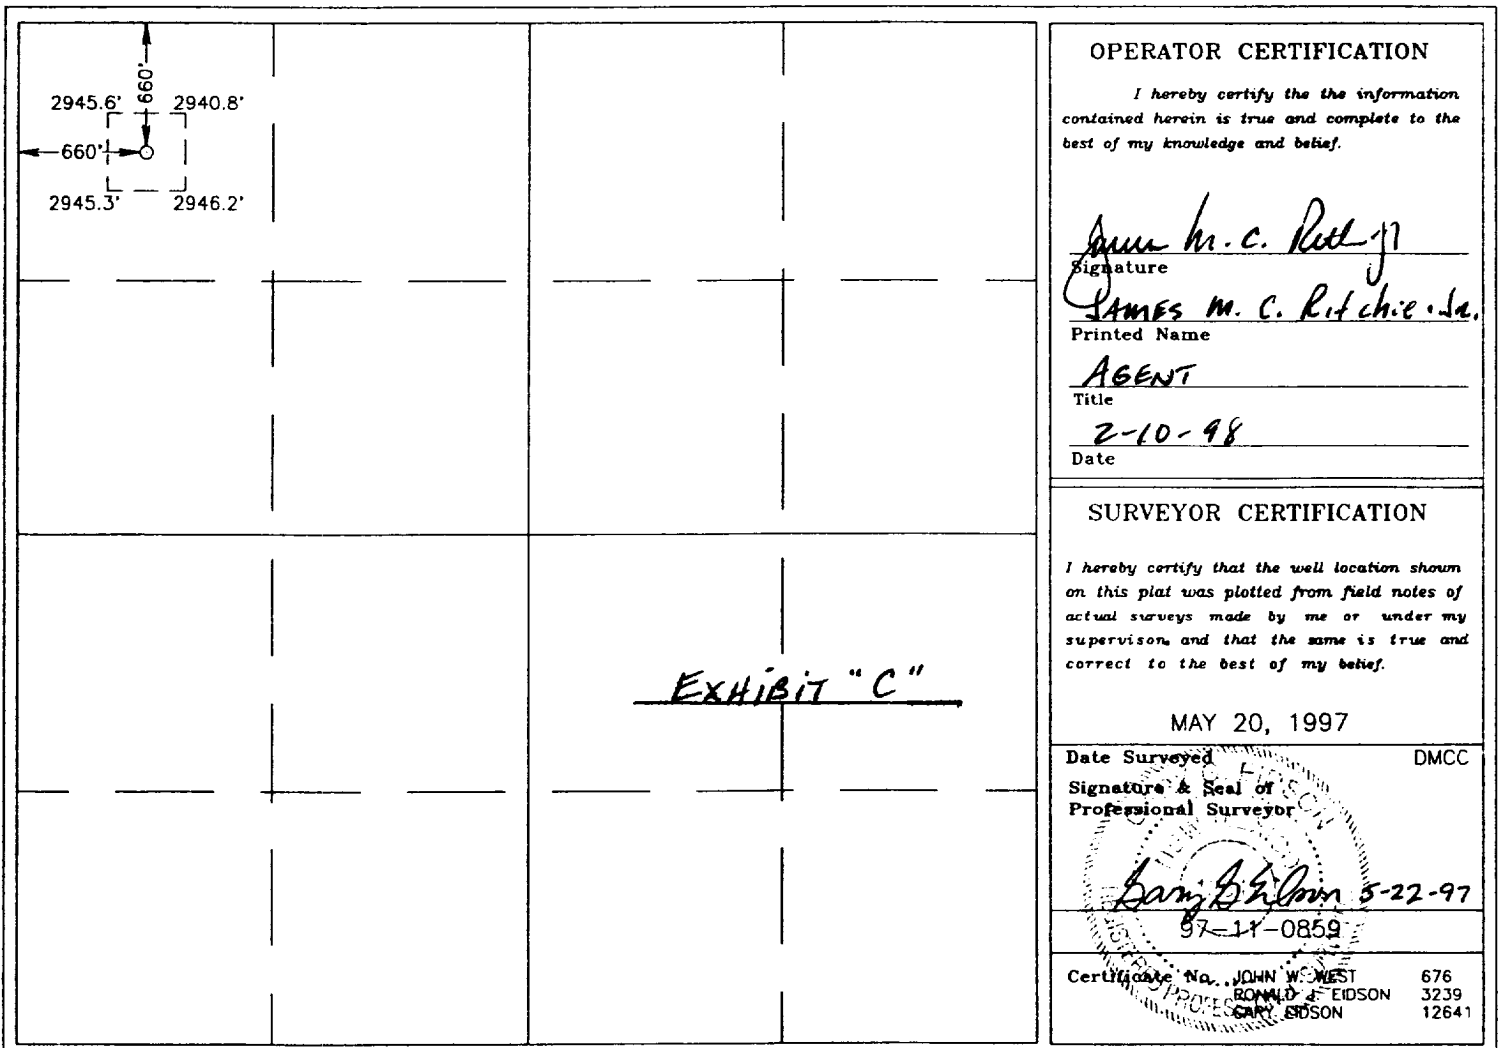 660'
2945.6' 2940.8'
660'
2945.3' 2946.2'
EXHIBIT "C"
OPERATOR CERTIFICATION
I hereby certify the the information
contained herein is true and complete to the
best of my knowledge and belief.
Signature
JAMES M. C. Ritchie. Jr.
Printed Name
AGENT
Title
2-10-98
Date
SURVEYOR CERTIFICATION
I hereby certify that the well location shown
on this plat was plotted from field notes of
actual surveys made by me or under my
supervison, and that the same is true and
correct to the best of my belief.
MAY 20, 1997
Date Surveyed DMCC
Signature & Seal of
Professional Surveyor
5-22-97
97-11-0859
Certificate No. JOHN W. WEST 676
RONALD J. EIDSON 3239
GARY EIDSON 12641